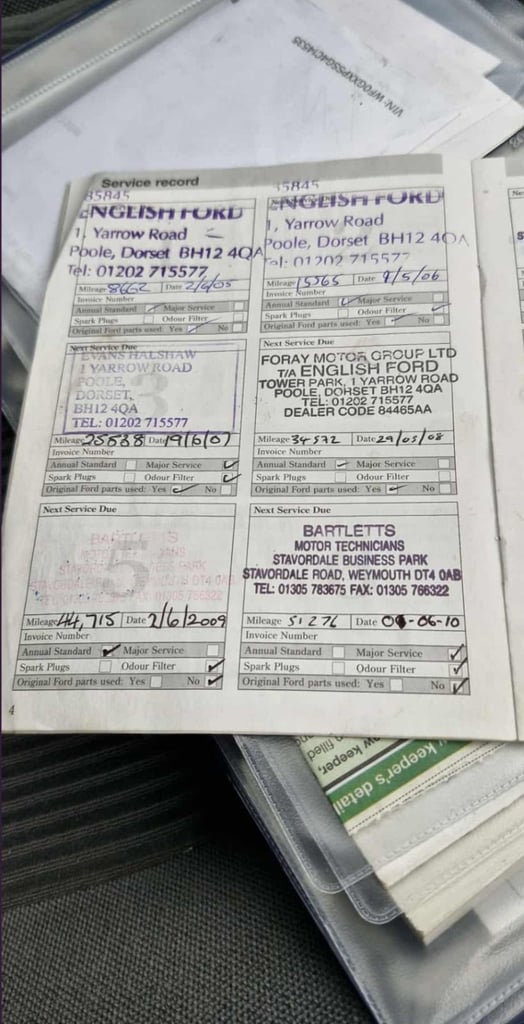 Service record
85845
ENGLISH FORD
1, Yarrow Road
Poole, Dorset BH12 4QA
Tel: 01202 715577
Mileage 8662 Date 2/6/05
Invoice Number
Annual Standard Major Service
Spark Plugs Odour Filter
Original Ford parts used: Yes No
Next Service Due
EVANS HALSHAW
1 YARROW ROAD
POOLE,
DORSET,
BH12 4QA
TEL: 01202 715577
3
Mileage 25638 Date 19/6/07
Invoice Number
Annual Standard Major Service
Spark Plugs Odour Filter
Original Ford parts used: Yes No
Next Service Due
BARTLETTS
5
Mileage 44,715 Date 2/6/2009
Invoice Number
Annual Standard Major Service
Spark Plugs Odour Filter
Original Ford parts used: Yes No
4
85845
ENGLISH FORD
1, Yarrow Road
Poole, Dorset BH12 4QA
Tel: 01202 715577
Mileage 15565 Date 9/5/06
Invoice Number
Annual Standard Major Service
Spark Plugs Odour Filter
Original Ford parts used: Yes No
Next Service Due
FORAY MOTOR GROUP LTD
T/A ENGLISH FORD
TOWER PARK, 1 YARROW ROAD
POOLE, DORSET BH12 4QA
TEL: 01202 715577
DEALER CODE 84465AA
Mileage 34572 Date 29/05/08
Invoice Number
Annual Standard Major Service
Spark Plugs Odour Filter
Original Ford parts used: Yes No
Next Service Due
BARTLETTS
MOTOR TECHNICIANS
STAVORDALE BUSINESS PARK
STAVORDALE ROAD, WEYMOUTH DT4 0AB
TEL: 01305 783675 FAX: 01305 766322
Mileage 51276 Date 04-06-10
Invoice Number
Annual Standard Major Service
Spark Plugs Odour Filter
Original Ford parts used: Yes No
keeper's detail
keeper,
filled